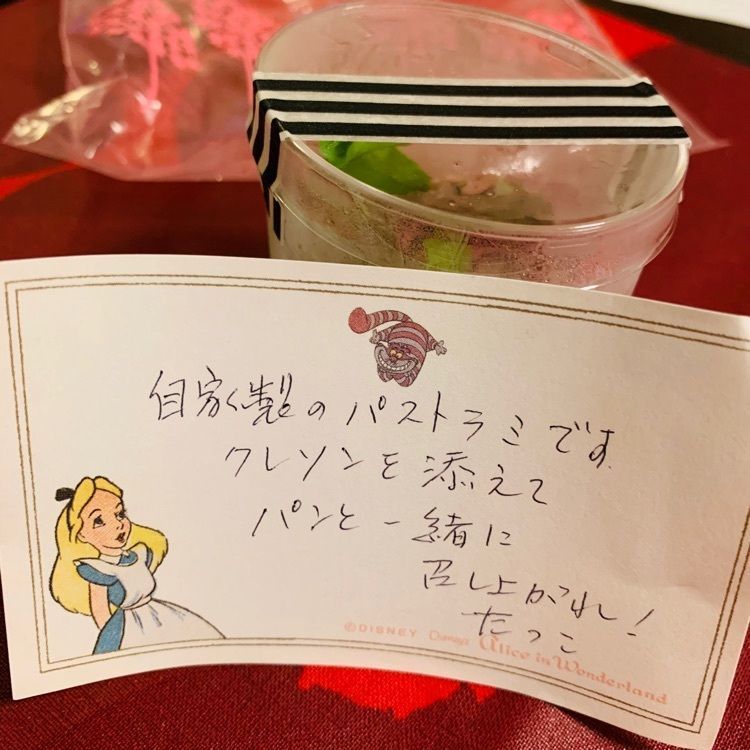 自家製のパストラミです
クレソンを添えて
パンと一緒に
召し上がれ!
たつこ
©DISNEY Disney Alice in Wonderland